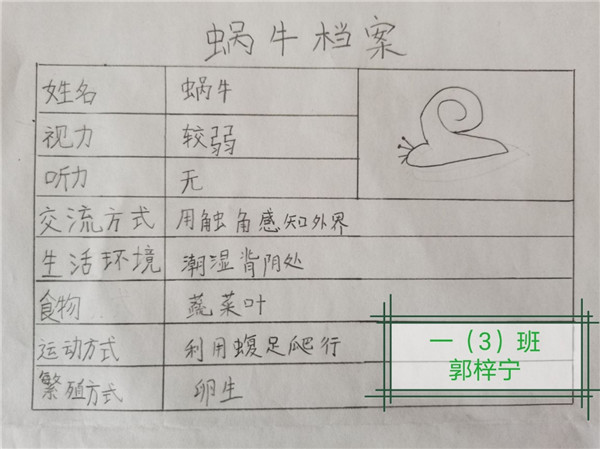 蜗牛档案
姓名 蜗牛
视力 较弱
听力 无
交流方式 用触角感知外界
生活环境 潮湿背阴处
食物 蔬菜叶
运动方式 利用蝮足爬行
繁殖方式 卵生
一（3）班
郭梓宁